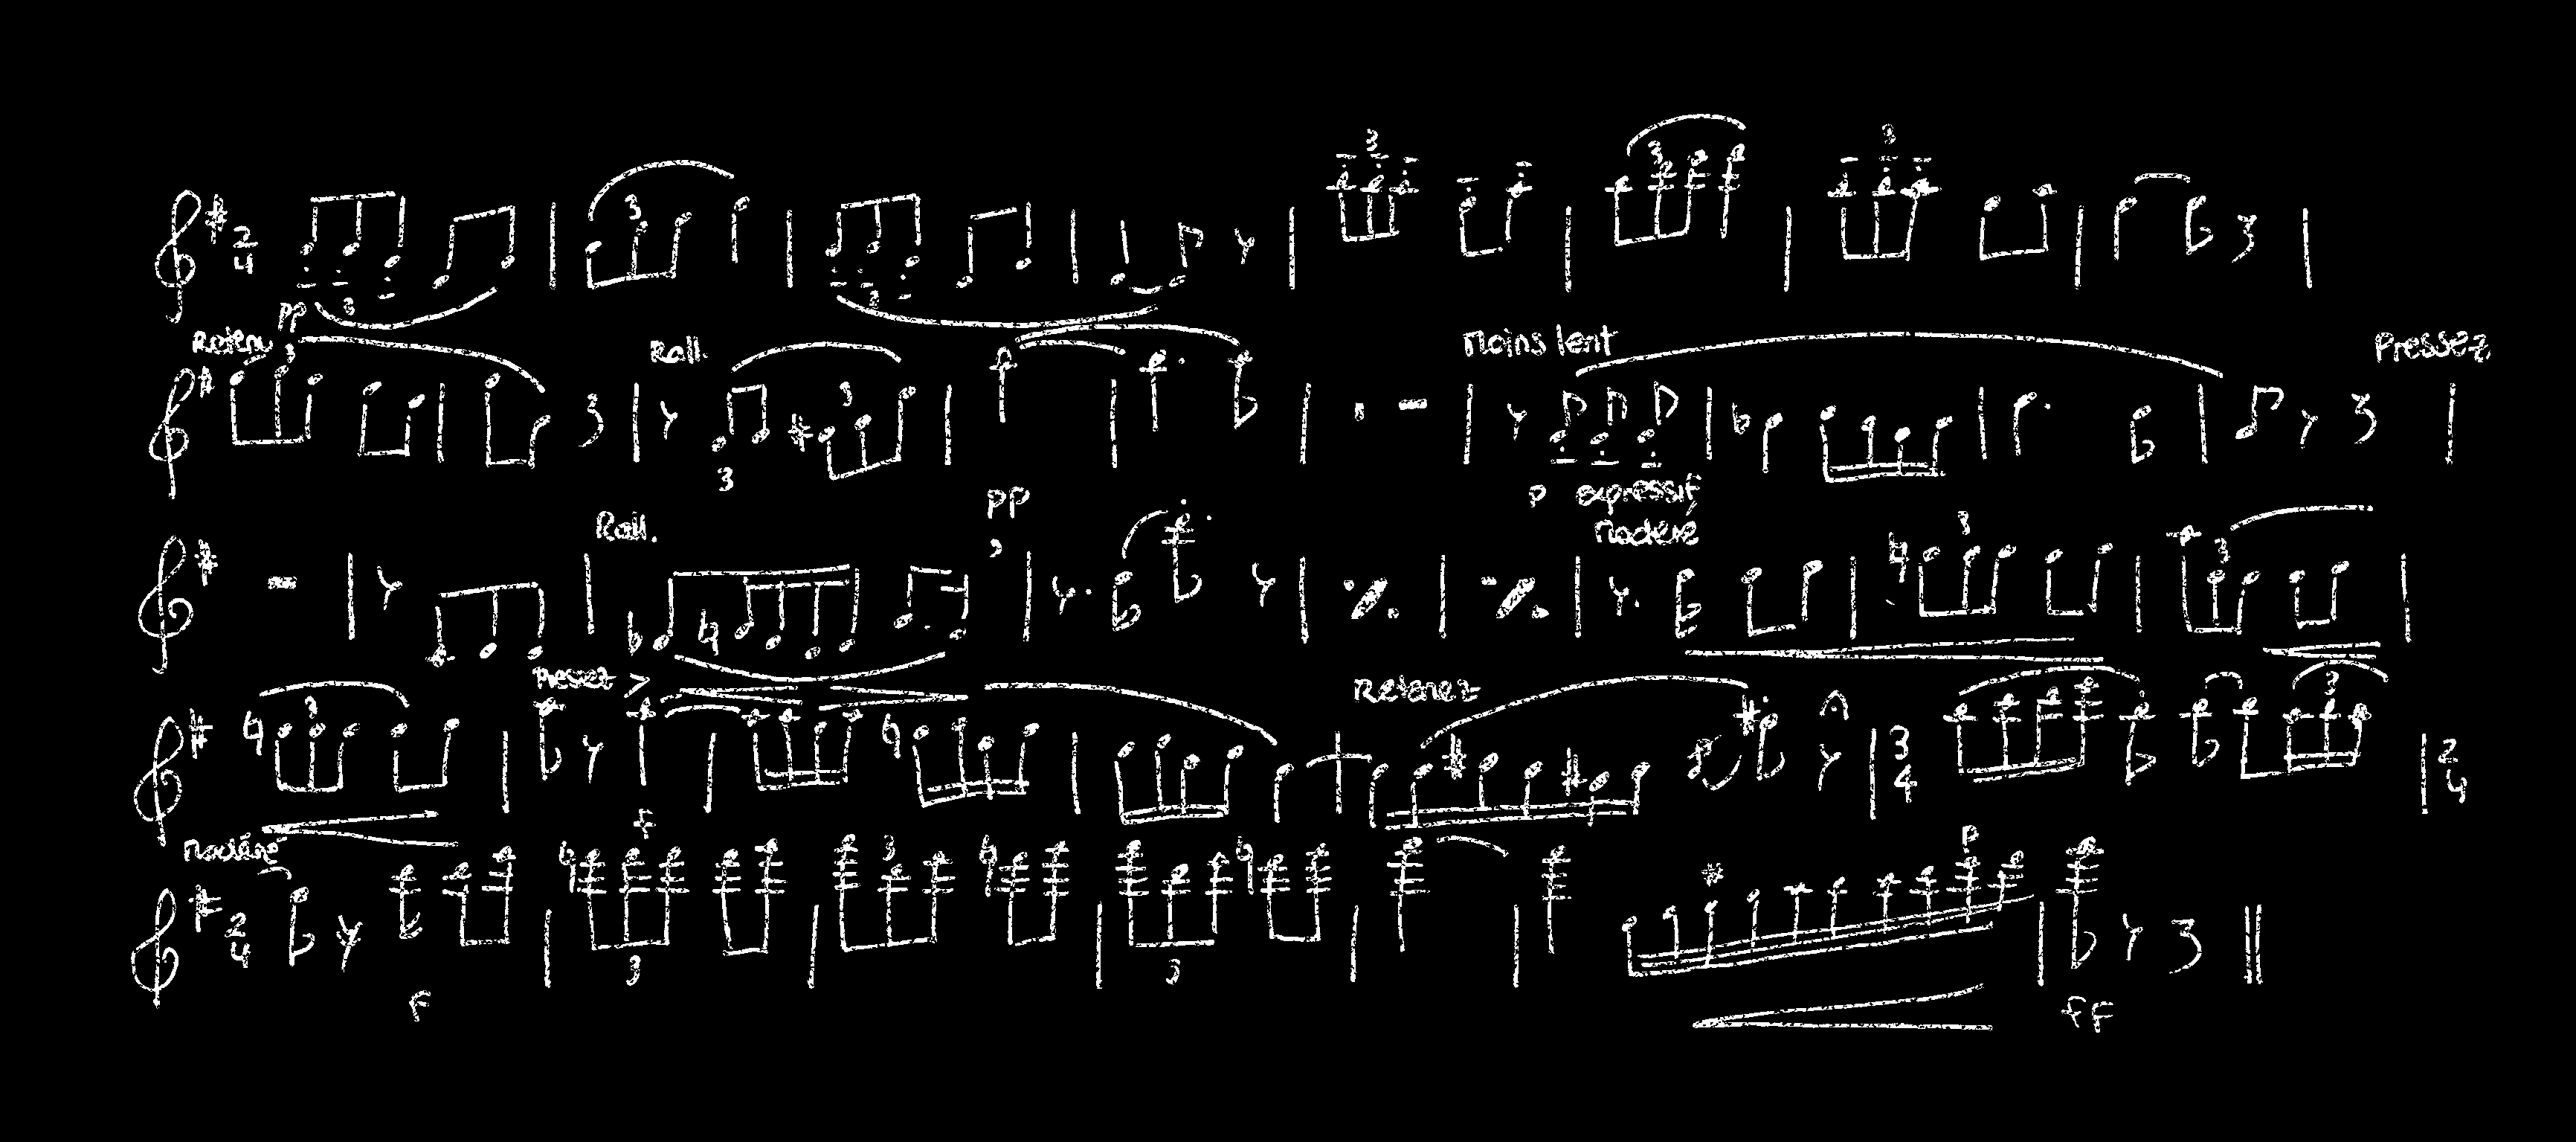 2 4 3 3 3 3 3
pp 3 2
Retenu 3 Rall. 3 Moins lent Pressez
3
Rall. pp p expressif
Modéré 3 3
3 Pressez > Retenez 3 4 3 2 4
f
Modéré 2 4 3
3 3
F ff